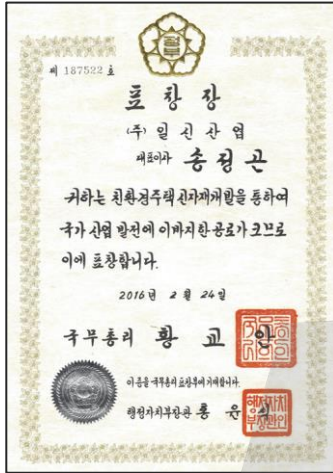 제 187522 호
표창장
(주) 일신산업
대표이사 송정곤
귀하는 친환경주택 신자재개발을 통하여
국가 산업 발전에 이바지한 공로가 크므로
이에 표창합니다.
2016년 2월 24일
국무총리 황교안
이 증을 국무총리 표창부에 기재합니다.
행정자치부장관 홍윤식